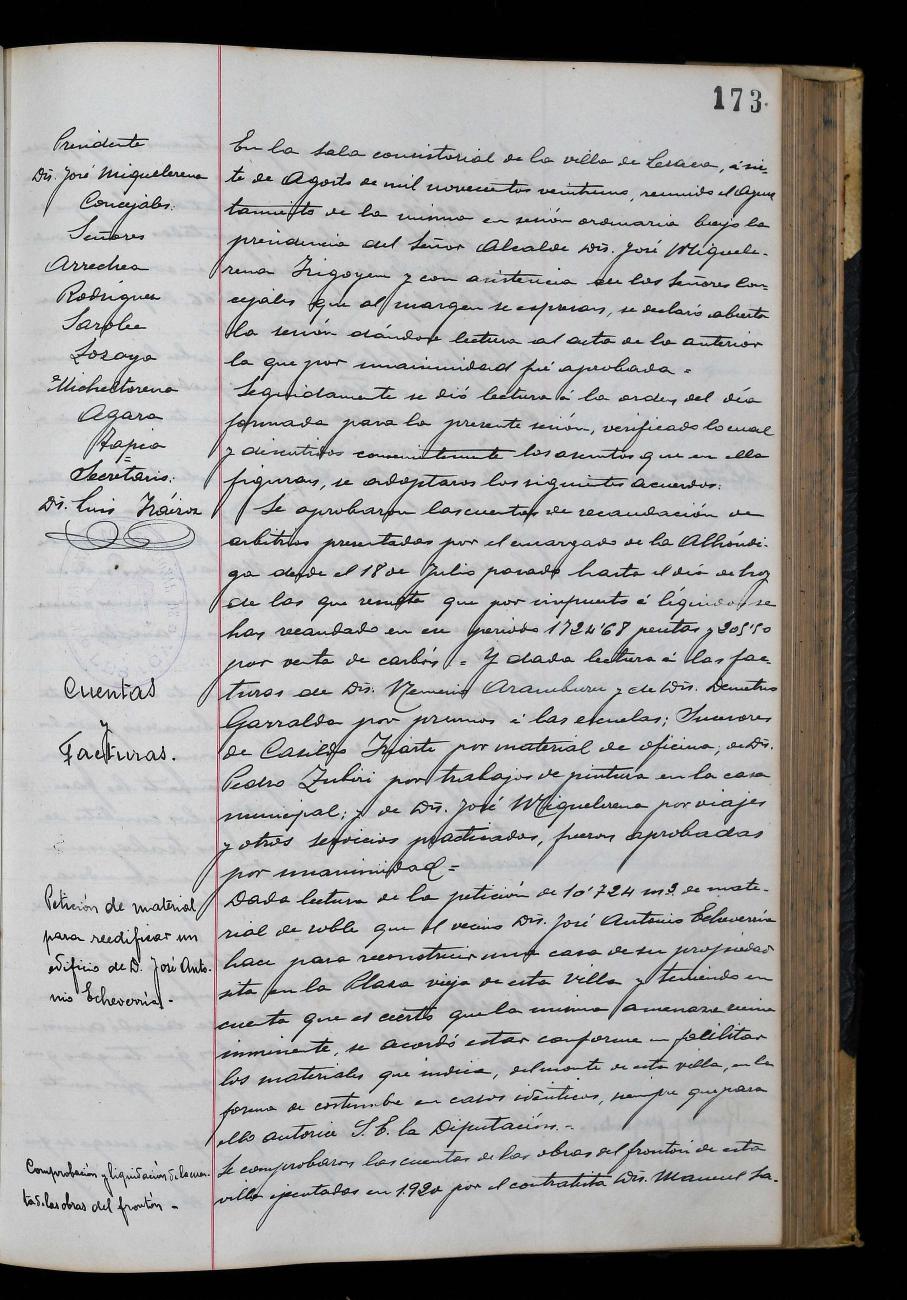 173.
Presidente
Dn. José Miguelerena
Concejales:
Señores
Arrechea
Rodriguez
Sarobe
Lozaya
Michelterena
Agara
Tapia
=
Secretario:
Dn. Luis Iráizoz
Cuentas
y
Facturas.
Petición de material
para reedificar un
edificio de D. José Anto-
nio Echeverría.-
Comprobación y liquidación de la cuen-
ta d. las obras del frontón -
En la Sala consistorial de la villa de Lesaca, á sie-
te de Agosto de mil novecientos veintiuno, reunido el Ayun
tamiento de la misma en sesión ordinaria bajo la
presidencia del Señor Alcalde Dn. José Miguele-
rena Irigoyen y con asistencia de los Señores Con-
cejales que al margen se espresan, se declaró abierta
la sesión dándose lectura al acta de la anterior
la que por unanimidad fué aprobada =
Seguidamente se dió lectura á la orden del día
formada para la presente sesión, verificado lo cual
y discutidos convenientemente los asuntos que en ella
figuran, se adoptaron los siguientes acuerdos:
Se aprobaron las cuentas de recaudación de
arbitrios presentadas por el encargado de la Alhóndi-
ga desde el 18 de Julio pasado hasta el día de hoy
de las que resulta que por impuesto á líquidos se
han recaudado en ese periodo 1724'67 pesetas y 205'50
por venta de carbón = Y dada lectura á las fac-
turas de Dn. Nemesio Aramburu y de Dn. Demetrio
Garralda por premios á las escuelas; Sucesores
de Casildo Iriarte por material de oficina; de Dn.
Pedro Zubiri por trabajos de pintura en la casa
municipal; y de Dn. José Miguelerena por viajes
y otros servicios practicados, fueron aprobadas
por unanimidad =
Dada lectura de la petición de 10'724 m3. de mate-
rial de roble que el vecino Dn. José Antonio Echeverría
hace para reconstruir una casa de su propiedad
sita en la Plaza vieja de esta Villa y teniendo en
cuenta que es cierto que la misma amenaza ruina
inminente, se acordó estar conforme en facilitar
los materiales que indica, del monte de esta villa, en la
forma de costumbre en casos idénticos, siempre que para
ello autorice S.E. la Diputación.-
Se comprobaron las cuentas de las obras del frontón de esta
villa ejecutadas en 1.920 por el contratista Dn. Manuel La-